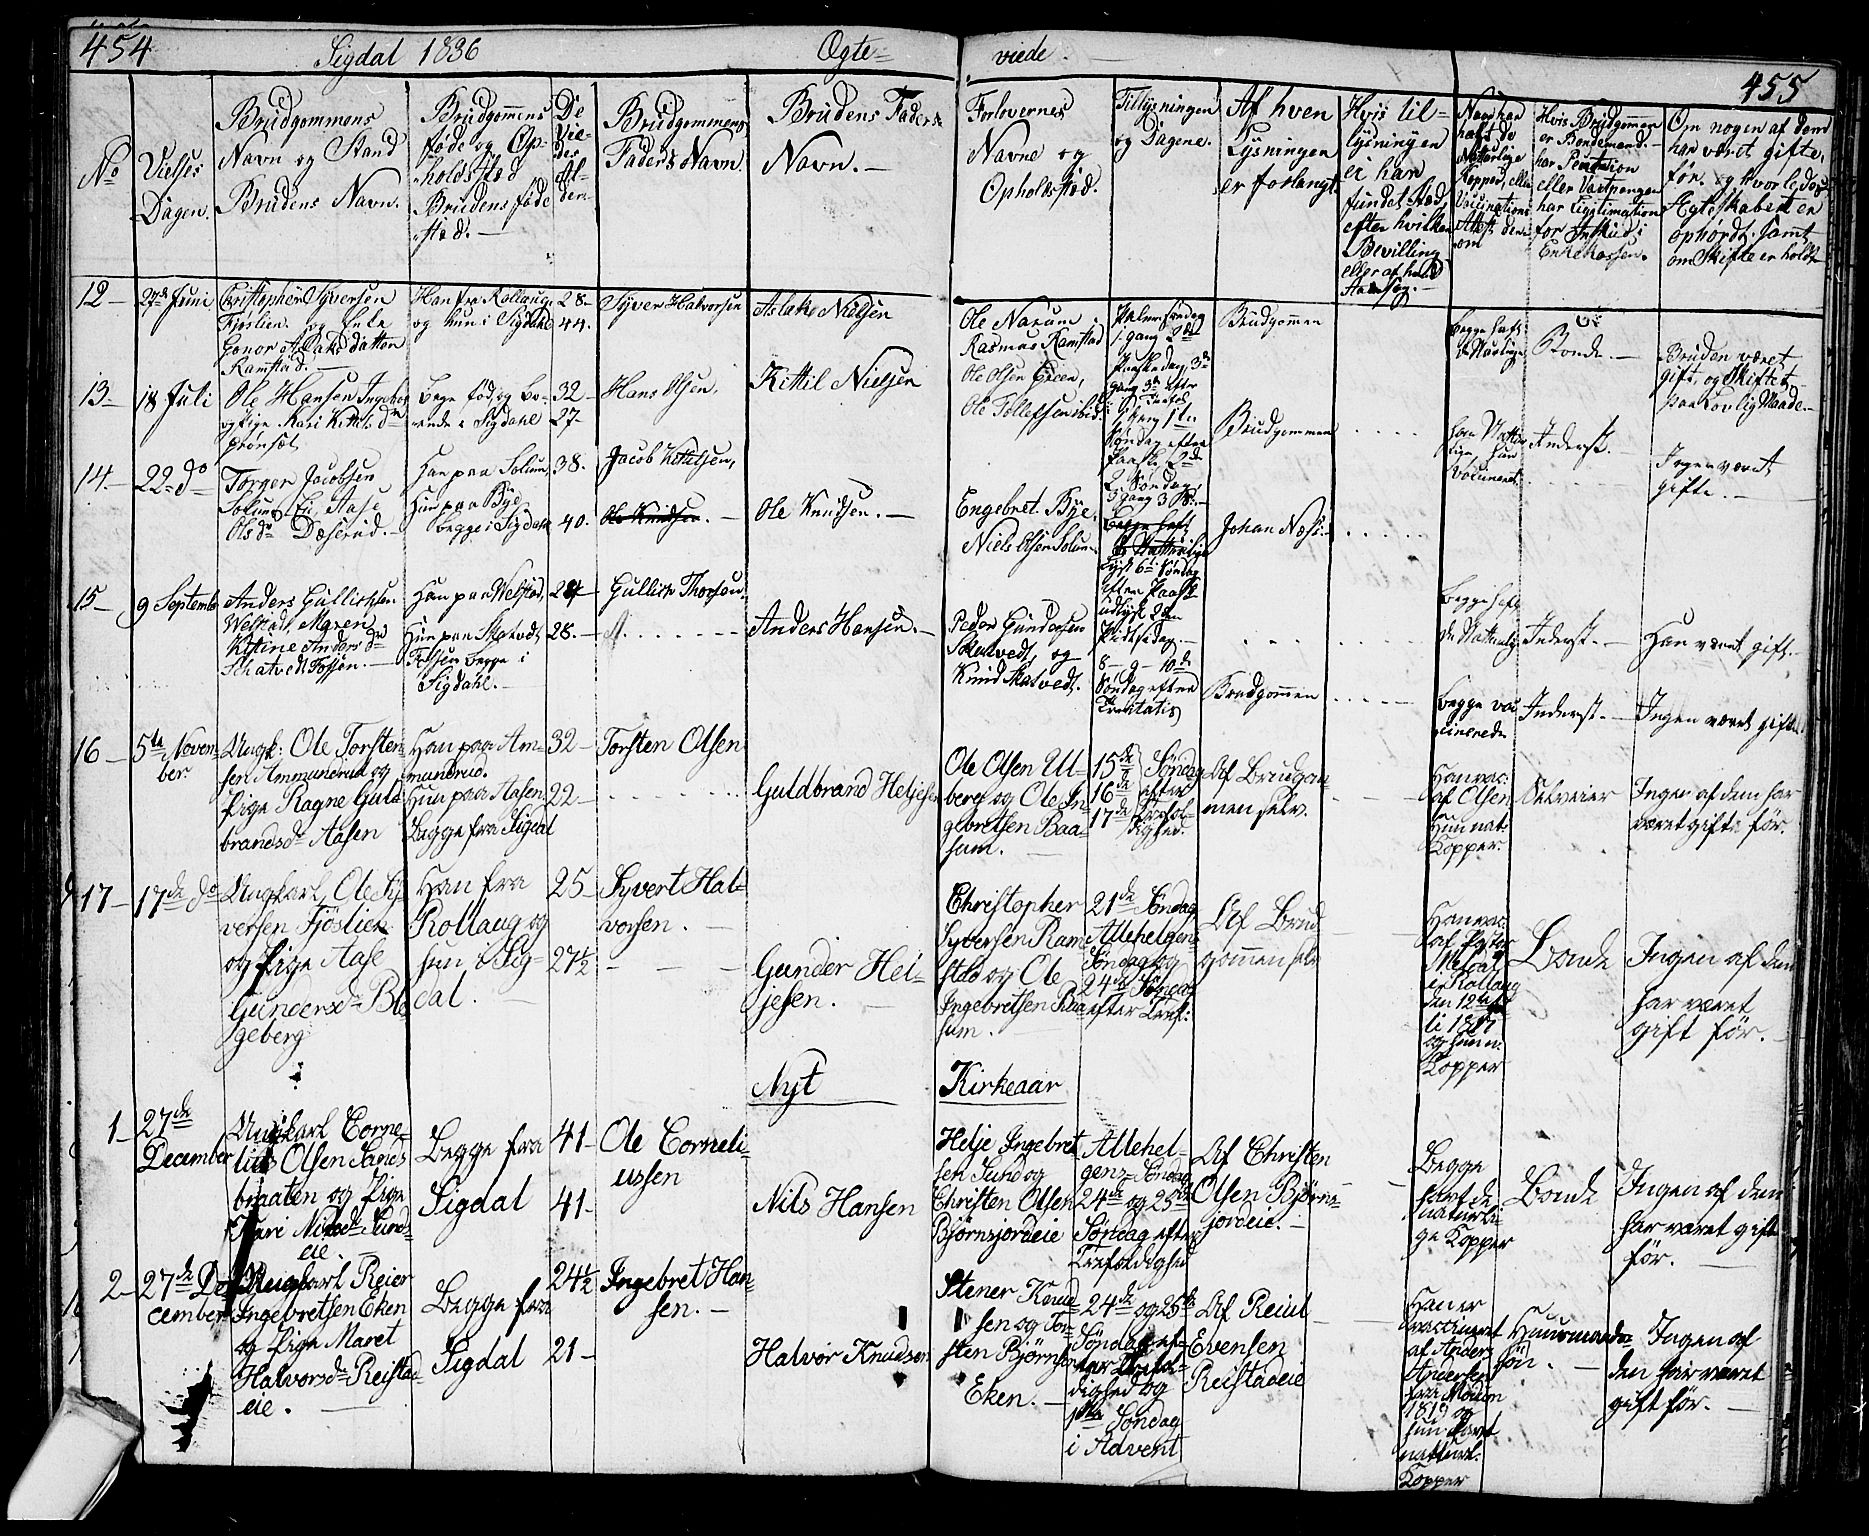 454
Sigdal 1836
Ægte=
viede.
455
No
Vielses
Dagen.
Brudgommens
Navn og Stand
Brudens Navn.
Brudgommens
føde og Op-
holdssted
Brudens føde
sted.
De
Vie-
des
Al-
der
Brudgommens
Faders Navn.
Brudens Faders
Navn.
Forlovernes
Navne og
Opholdssted.
Tillysningen
og Dagene.
Af hvem
Lysningen
er forlangt.
Hvis til-
lysningen
ei har
fundet Sted,
efter hvilken
Bevilling
Hvis Brudgommen
er Bondemand.
har Legitimation
for Indskud i
Enkekassen.
Om nogen af dem
har været gifte
før, og hvorledes
Ægteskabet er
ophørdt, samt
om Skifte er holdt
12
27de Juni
Christopher Syversen
Fjøslien og Enke
Gonor Aslaksdatter
Ramstad.
Han fra Rollaug
og hun i Sigdahl
28
44
Syver Halvorsen
Aslak Nielsen
Ole Narum
Rasmus Ramstad
Brudgommen
Begge hafte
Bonde.
Bruden været
gift, og Skiftet
paa Lovlig Maade
13
18 Juli
Ole Hansen
og Pige Kari Kittilsdtr
Bege fød og bo-
ende i Sigdahl
32
27
Hans Olsen.
Kittil Nielsen
Ole Olsen
Ole Tollefsen ibid:
Brudgommen
Inderst.
Ingen været
gifte.
14
22 do
Torger Jacobsen
Solum. Aase
Olsdr Døserud.
Han paa Solum
Hun paa
begge i Sigdal
38.
40.
Jacob Kittelsen,
Ole Knudsen.
Ole Knudsen.
Engebret Bye,
Niels Olsen Solum.
Johan Næss.
15
9 September
Anders Gullichsen
Welstad, Maren
Kistine Andersdr
Skatvedt Fossen.
Han paa Welstad,
Hun paa Skatvedt
Fossen begge i
Sigdahl.
28.
Gullich Thorsen.
Anders Hansen.
Peder Gundersen
Skatvedt, og
Knud Skatvedt.
8 - 9 - 10de
Søndag efter
Trinitatis
Brudgommen
Begge hafte
Inderst.
Han været gift.
begge vac
cinerede
Inderst.
Ingen været gifte
16
5te Novem-
ber
Ungk: Ole Torsten-
sen Ammundrud og
Pige Ragne Guld
brandsdr Aasen
Han paa Am-
mundrud.
Hun paa Aasen
Begge fra Sigdal
32
22
Torsten Olsen
Guldbrand Heljesen
Ole Olsen Ul-
berg og Ole In-
gebretsen Baa-
sum.
15de
16de
17de
Søndag
efter
Trefol-
dighed.
Af Brudgom-
men selv.
Han vac.
af Olsen
Hun nat:
Kopper.
Selveier
Ingen af dem har
været gifte før.
17
17de do
Ungkarl, Ole Sy-
versen Fjøslien
og Pige Aase
Gundersdr Ble
geberg
Han fra
Rollaug og
hun i Sig-
dal.
25
27½
Syvert Hal-
vorsen.
Gunder Hel-
jesen.
Christopher
Syversen Ram
stad og Ole
Ingebretsen Baa-
sum.
21de Søndag
Allehelgens
Søndag og
24de Søndag
efter Tref:
Af Brud
gommen selv
Han vac:
af Pastor
i Rollaug
den 12te Ju-
li 1817
og hun n:
Kopper
Bonde
Ingen af dem
har været
gift før.
Nyt
Kirkeaar
1
27de
December
Ungkarl Corne-
lius Olsen Sands
braaten og Pige
Kari Nilsdr Sund-
eie.
Begge fra
Sigdal
41
41
Ole Corneli-
ussen
Nils Hansen
Helje Ingebret
sen Sund og
Christen Olsen
Bjørnsjordeie
Allehel-
gens Søndag
24de og 25de
Søndag efter
Trefoldighed
Af Christen
Olsen Bjørns-
jordeie.
Begge
havt de
naturli-
ge Kopper
Bonde
Ingen af dem
har været gift
før.
2
27de De-
cember
Ungkarl Reier
Ingebretsen Eken
og Pige Maret
Halvorsdr Reistad
eie.
Begge fra
Sigdal
24½
21
Ingebret Han-
sen.
Halvor Knudsen
Stener Knud-
sen og Tor-
sten Bjørnsen
Eken.
24de og 25de
Søndag ef-
ter Trefol-
dighed og
1ste Søndag
i Advent
Af Reiul
Evensen
Reistadeie
Han er
vaccineret
af Anders
Andersen
fra Modum
1819 og
hun havt
naturl.
Kopper
Huusmands
søn.
Ingen af
dem har været
gift før.